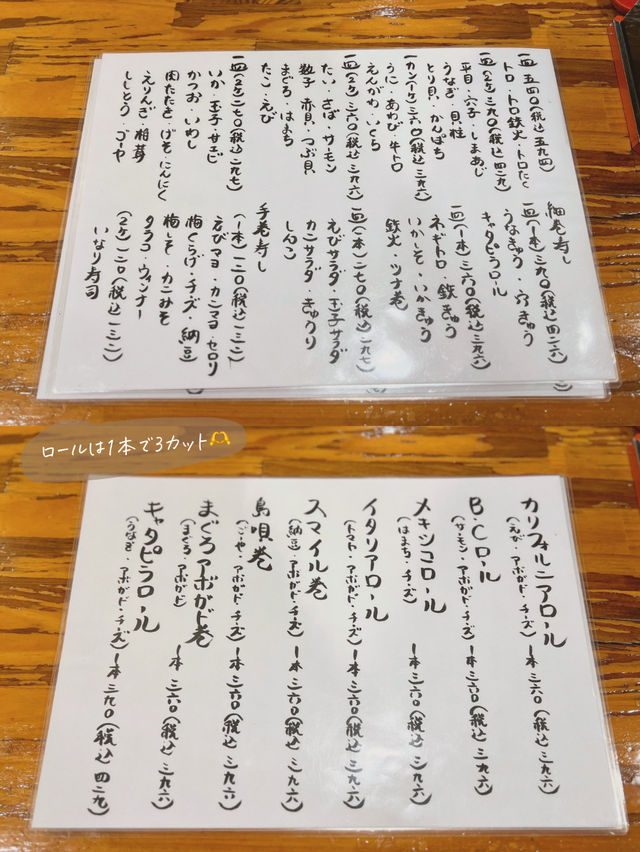 一皿 五四〇(税込 五九四)
トロ・トロ鉄火・トロたく
一皿(2ケ)三九〇(税込 四二九)
平目・穴子・しまあじ
うなぎ・貝柱
とり貝・かんぱち
一カン(一ケ)三六〇(税込 三九六)
うに・あわび・牛トロ
えんがわ・いくら
一皿(2ケ)三六〇(税込 三九六)
たい・さば・サーモン
数子・赤貝・つぶ貝
まぐろ・はまち
たこ・えび
一皿(2ケ)二七〇(税込 二九七)
いか・玉子・サエビ
かつお・いわし
肉たたき・げそ・にんにく
えりんぎ・椎茸
ししとう・ゴーヤ
細巻寿し
一皿(一本)三九〇(税込 四二九)
うなきゅう・穴きゅう
キャタピラロール
一皿(一本)三六〇(税込 三九六)
ネギトロ・鉄きゅう
いかしそ・いかきゅう
鉄火・ツナ巻
一皿(一本)二七〇(税込 二九七)
えびサラダ・玉子サラダ
カニサラダ・きゅうり
しんこ
手巻寿し
(一本)一二〇(税込 一三二)
えびマヨ・カニマヨ・セロリ
梅くらげ・チーズ・納豆
梅しそ・カニみそ
タラコ・ウィンナー
(2ケ)一二〇(税込 一三二)
いなり寿司
ロールは1本で3カット
カリフォルニアロール
(えび・アボガド・チーズ) 一本 三六〇(税込 三九六)
B.Cロール
(サーモン・アボガド・チーズ) 一本 三六〇(税込 三九六)
メキシコロール
(はまち・チーズ) 一本 三六〇(税込 三九六)
イタリアロール
(トマト・アボガド・チーズ) 一本 三六〇(税込 三九六)
スマイル巻
(納豆・アボガド・チーズ) 一本 三六〇(税込 三九六)
島唄巻
(ごーや・アボガド・チーズ) 一本 三六〇(税込 三九六)
まぐろアボガド巻
(まぐろ・アボガド) 一本 三六〇(税込 三九六)
キャタピラロール
(うなぎ・アボガド・チーズ) 一本 三九〇(税込 四二九)